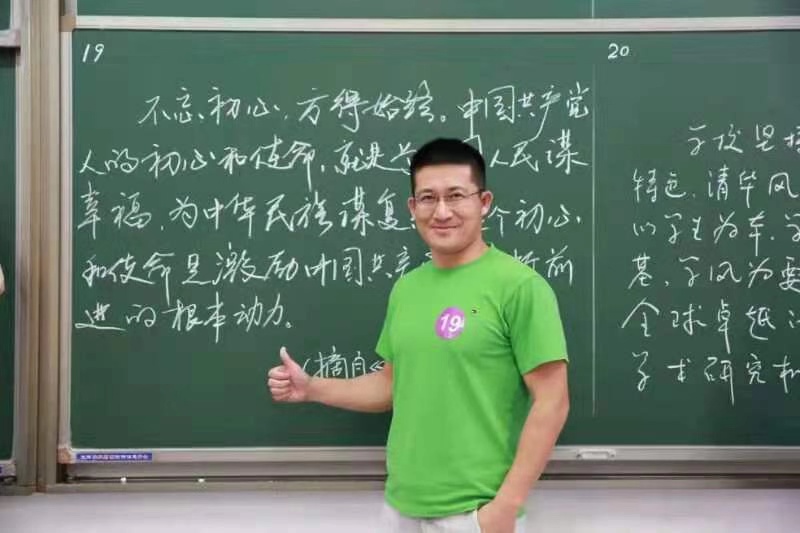 19
不忘初心,方得始终。中国共产党
人的初心和使命,就是 人民谋
幸福,为中华民族谋复 个初心
和使命是激励中国共产 断前
进的根本动力。
(摘自《
20
学校是
特色,清华风
以学生为本,学
基,学风为要
全球卓越
学术研究机
19